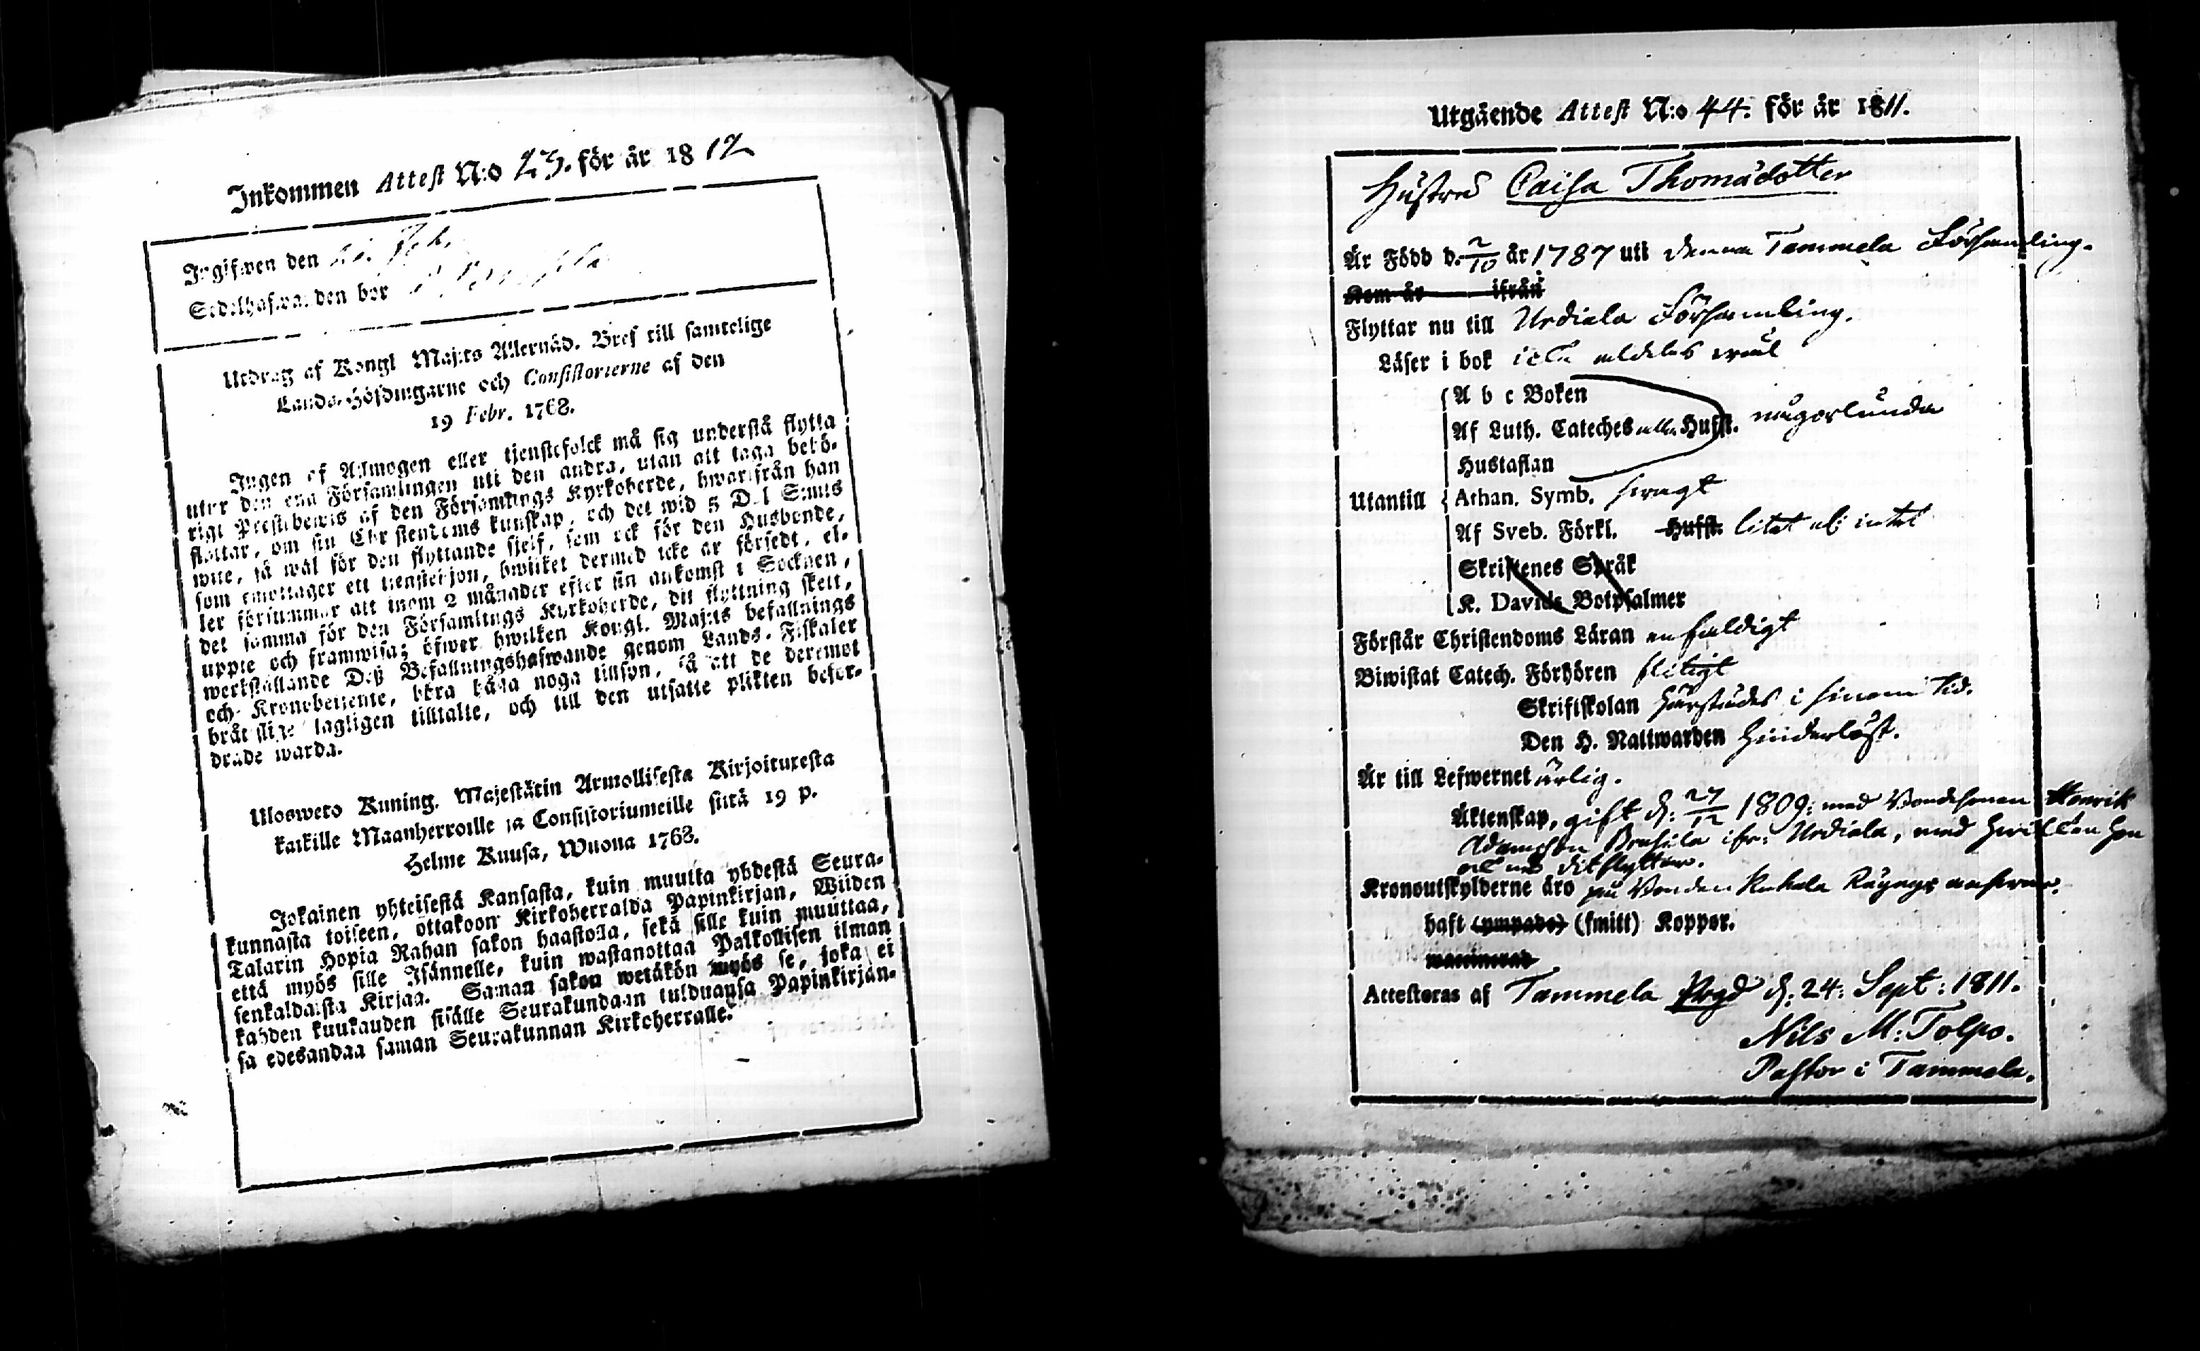 Inkommen Attest N:o 23. för år 1812
Ingifwen den Feb.
Sedelhafwanden bor
Utdrag af Kongl Maj:ts Allernåd. Bref till samtelige
Lands-Höfdingarne och Consistorierne af den
19 Febr. 1768.
Ingen af Allmogen eller tjenstefolck må sig understå flytta
utur den ena Församlingen uti den andra, utan att taga behö-
rigt Prestebewis af den Församlings Kyrkoherde, hwarifrån han
flyttar, om sin Christendoms kunskap, och det wid 5 Dal Smts
wite, så wäl för den flyttande sjelf, som ock för den Husbonde,
som emottager ett tienstehjon, hwilket dermed icke är försedt, el-
ler försummar att inom 2 månader efter sin ankomst i Socknen,
det samma för den Församlings Kyrkoherde, dit flyttning skett,
uppte och framwisa; öfwer hwilken Kongl. Maj:ts befallnings
werkställande Deß Befallningshafwande genom Lands-Fiskaler
och Kronobetjente, böra hafwa noga tillsyn, så att de deremot
bråtslige lagligen tilltalte, och till den utsatte plikten befor-
drade warda.
Ulosweto Kuning. Majestätin Armollisesta Kirjoituxesta
kaikille Maanherroille ja Consistoriumeille siitä 19 p.
Helme Kuusa, Wuona 1768.
Jokainen yhteisestä Kansasta, kuin muutta yhdestä Seura-
kunnasta toiseen, ottakoon Kirkoherralda Papinkirjan, Wiiden
Talarin Hopia Rahan sakon haastolla, sekä sille kuin muuttaa,
että myös sille Isännelle, kuin wastanottaa Palkollisen ilman
senkaldaista Kirjaa. Saman sakon wetäkön myös se, joka ei
kahden kuukauden sisälle Seurakundaan tulduansa Papinkirjan-
sa edesandaa saman Seurakunnan Kirkoherralle.
Utgående Attest N:o 44. för år 1811.
Hustru Caisa Thomädotter
Är Född d. 2/10 år 1787 uti denna Tammela Församling.
Kom år ifrån
Flyttar nu till Urdiala Församling.
Läser i bok icke aldeles wäl
A b c Boken
Af Luth. Cateches Hufst. någorlunda
Hustaflan
Utantill Athan. Symb. swagt
Af Sveb. Förkl. Hufst. litet el: intet
Skriftenes Språk
K. Davids Botpsalmer
Förstår Christendoms Läran enfaldigt
Biwistat Catech. Förhören flitigt
Skriftskolan härstädes i sinom tid.
Den H. Nattwarden hinderlöst.
Är till Lefwernet ärlig.
Äktenskap, gift d: 27/12 1809: med Bondesonen Henrik
Adamsson ifr: Urdiala, med hwilken hon
nu ditflyttar.
Kronoutskylderne äro på Bonden answar.
haft (ympade) (smitt) Koppor.
waccinerad
Attesteras af Tammela Prgd d: 24: Sept: 1811.
Nils M: Tolpo.
Pastor i Tammela.